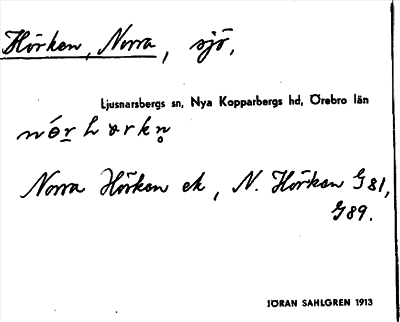 Hörken, Norra, sjö,
Ljusnarsbergs sn, Nya Kopparbergs hd, Örebro län
Norra Hörken ek, N. Hörken G81,
G89.
JÖRAN SAHLGREN 1913